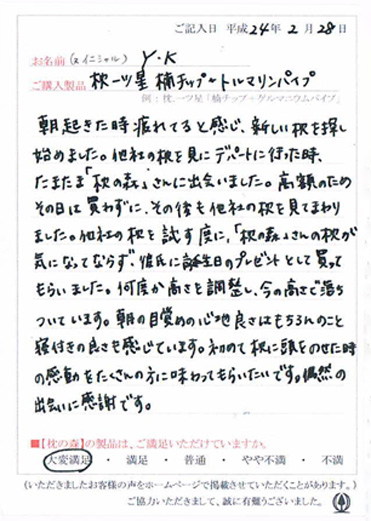 ご記入日 平成24年2月28日
お名前(又イニシャル) Y.K
ご購入製品 枕一ツ星 楠チップ+トルマリンパイプ
例:枕.一ツ星『楠チップ+ゲルマニウムパイプ』
朝起きた時疲れてると感じ、新しい枕を探し
始めました。他社の枕を見にデパートに行った時、
たまたま「枕の森」さんに出会いました。高額のため
その日は買わずに、その後も他社の枕を見てまわり
ました。他社の枕を試す度に、「枕の森」さんの枕が
気になってならず、彼氏に誕生日のプレゼントとして買って
もらいました。何度か高さを調整し、今の高さで落ち
ついています。朝の目覚めの心地良さはもちろんのこと
寝付きの良さも感じています。初めて枕に頭をのせた時
の感動をたくさんの方に味わってもらいたいです。偶然の
出会いに感謝です。
■【枕の森】の製品は、ご満足いただけていますか。
大変満足 ・ 満足 ・ 普通 ・ やや不満 ・ 不満
(いただきましたお客様の声をホームページで掲載させていただくことがあります。)
ご協力いただきまして、誠に有難うございました。